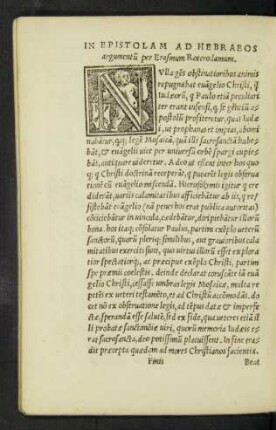 IN EPISTOLAM AD HEBRAEOS
argumentū per Erasmum Roterodamum.
NVlla gēs obstinatioribus animis
repugnabat euāgelio Christi, q̄
iudæorū, q̄ Paulo etiā peculiari
ter erant infensi, q̄ se gentiū es
postolū profiteretur, quas iudæ
i, ut prophanas et impias, abomi
nabātur, qq; legē Mosaicā, quā illi sacrosanctā habe
bāt, & euāgelii uice per uniuersū orbē spargi cupie
bāt, antiquare uideretur. Adeo ut essent inter hos quo
q; q Christi doctrinā receperāt, q putarēt legis obserua
tionē cū euāgelio miscendā. Hierosolymis igitur q cre
diderāt, uariis calamitatibus afficiebātur ab iis, q re
sistebāt euāgelio (nā penes hos erat publica autoritas)
cōiiciebātur in uincula, cædebātur, diripiebātur illorū
bona. hos itaq; cōsolatur Paulus, partim exēplo ueterū
sanctorū, quorū pleriq; similibus, aut grauioribus cala
mitatibus exerciti sunt, quo uirtus illorū esset explora
tior spectatiorq;, ac præcipue exēplo Christi, partim
spe præmii coelestis. deinde declarat coruscāte iā euā
gelio Christi, cessasse umbras legis Mosaicæ, multa re
petēs ex ueteri testamēto, et ad Christū accōmodāt. do
cet nō ex obseruatione legis, ad tēpus datæ & imperfe
ctæ, sperandā esse salutē, sed ex fide, qua ueteres etiā il
li probatæ sanctimoniæ uiri, quorū memoria iudæis e
rat sacrosancta, deo potissimū placuissent. In fine eras
dit præcepta quædam ad mores Christianos facientia.
Finis
Beat